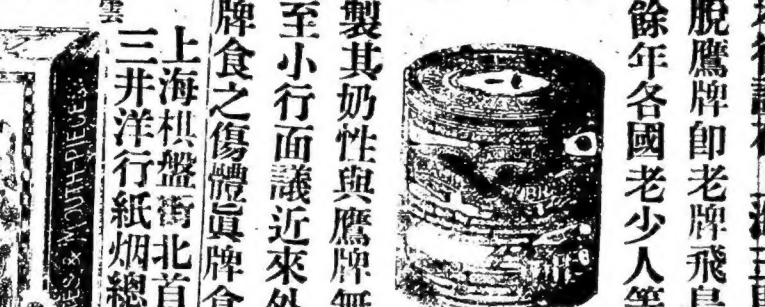 脫鷹牌即老牌飛
餘年各國老少人
製其奶性與鷹牌無
至小行面議近來外
牌食之傷體眞牌食
上海棋盤街北首
三井洋行紙烟總
雲
& MOUTH-PIECES